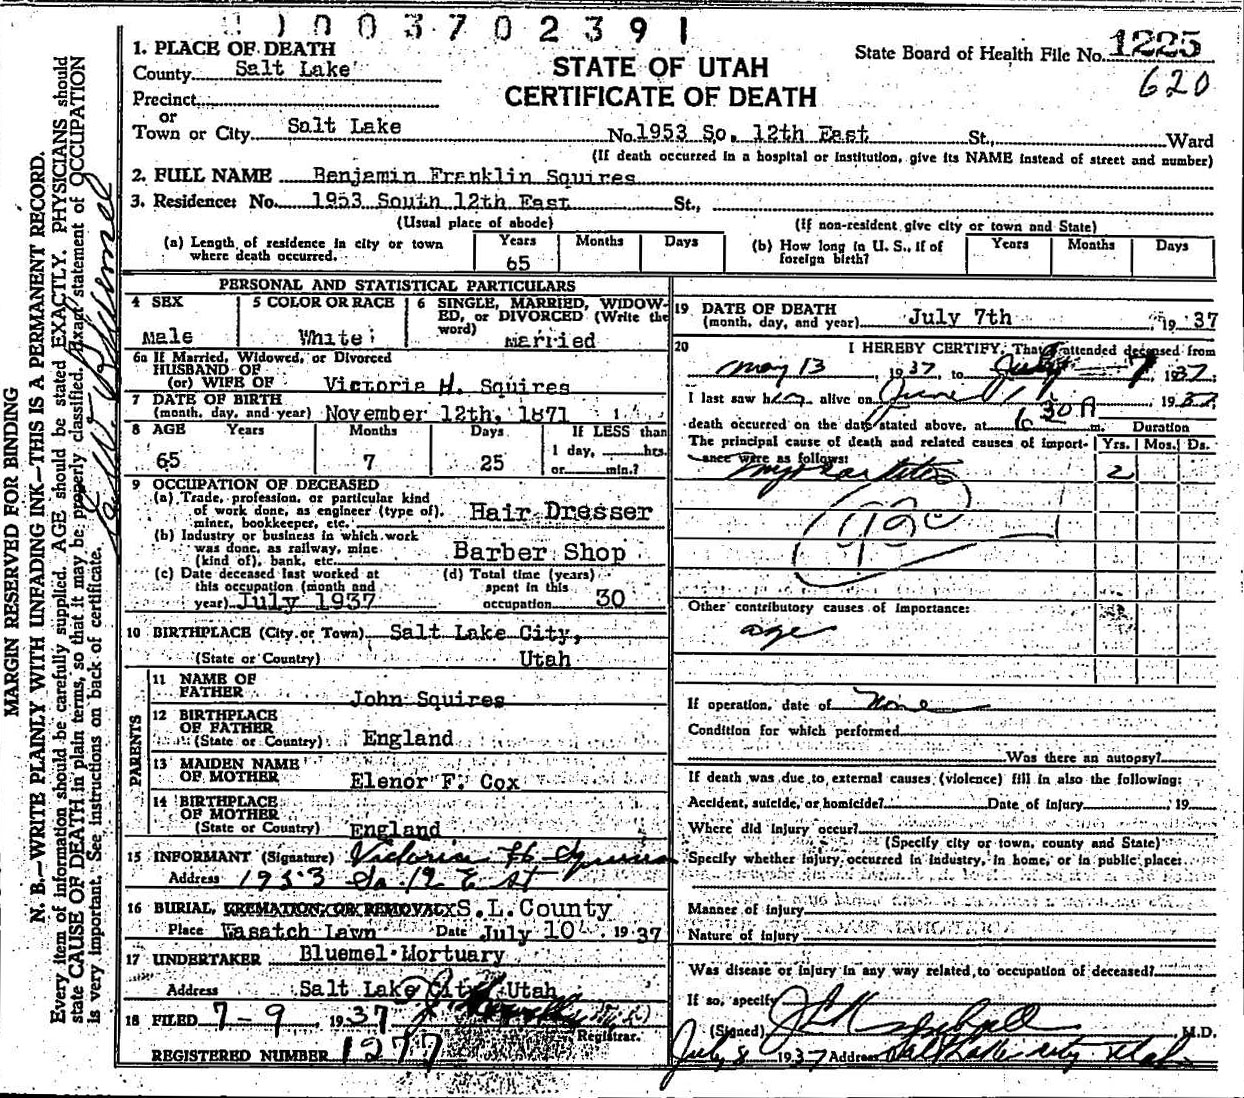 003702391
1. PLACE OF DEATH
County Salt Lake
Precinct
or
Town or City Salt Lake
STATE OF UTAH
CERTIFICATE OF DEATH
State Board of Health File No. 1225
620
No. 1953 So. 12th East St., Ward
(If death occurred in a hospital or institution, give its NAME instead of street and number)
2. FULL NAME Benjamin Franklin Squires
3. Residence: No. 1953 South 12th East St.,
(Usual place of abode) (If non-resident give city or town and State)
(a) Length of residence in city or town where death occurred. Years 65 Months Days
(b) How long in U. S., if of foreign birth? Years Months Days
PERSONAL AND STATISTICAL PARTICULARS
4 SEX Male
5 COLOR OR RACE White
6 SINGLE, MARRIED, WIDOWED, or DIVORCED (Write the word) Married
6a If Married, Widowed, or Divorced
HUSBAND OF
(or) WIFE OF Victoria H. Squires
7 DATE OF BIRTH
(month, day, and year) November 12th, 1871
8 AGE Years 65 Months 7 Days 25
If LESS than
1 day, hrs.
or min.?
9 OCCUPATION OF DECEASED
(a) Trade, profession, or particular kind
of work done, as engineer (type of),
miner, bookkeeper, etc. Hair Dresser
(b) Industry or business in which work
was done, as railway, mine
(kind of), bank, etc. Barber Shop
(c) Date deceased last worked at
this occupation (month and
year) July 1937
(d) Total time (years)
spent in this
occupation 30
10 BIRTHPLACE (City or Town) Salt Lake City,
(State or Country) Utah
PARENTS
11 NAME OF
FATHER John Squires
12 BIRTHPLACE
OF FATHER
(State or Country) England
13 MAIDEN NAME
OF MOTHER Elenor F. Cox
14 BIRTHPLACE
OF MOTHER
(State or Country) England
15 INFORMANT (Signature) Victoria H. Squires
Address 1953 So. 12 E St
16 BURIAL, CREMATION, OR REMOVAL S.L. County
Place Wasatch Lawn Date July 10 1937
17 UNDERTAKER Bluemel Mortuary
Address Salt Lake City, Utah
18 FILED 7-9, 1937
Registrar.
REGISTERED NUMBER 1277
19 DATE OF DEATH
(month, day, and year) July 7th 1937
20 I HEREBY CERTIFY, That I attended deceased from
May 13, 1937 to July 7, 1937
I last saw him alive on June 1937
death occurred on the date stated above, at 6 30A m.
The principal cause of death and related causes of importance were as follows:
Duration
Yrs. Mos. Ds.
Myocarditis 2
Other contributory causes of importance:
age
If operation, date of None
Condition for which performed
Was there an autopsy?
If death was due to external causes (violence) fill in also the following:
Accident, suicide, or homicide? Date of injury 19
Where did injury occur?
(Specify city or town, county and State)
Specify whether injury occurred in industry, in home, or in public place:
Manner of injury
Nature of injury
Was disease or injury in any way related to occupation of deceased?
If so, specify
(Signed) M.D.
July 8 1937 Address Salt Lake City Utah
MARGIN RESERVED FOR BINDING
N. B.—WRITE PLAINLY WITH UNFADING INK—THIS IS A PERMANENT RECORD.
Every item of information should be carefully supplied. AGE should be stated EXACTLY. PHYSICIANS should
state CAUSE OF DEATH in plain terms, so that it may be properly classified. Exact statement of OCCUPATION
is very important. See instructions on back of certificate.